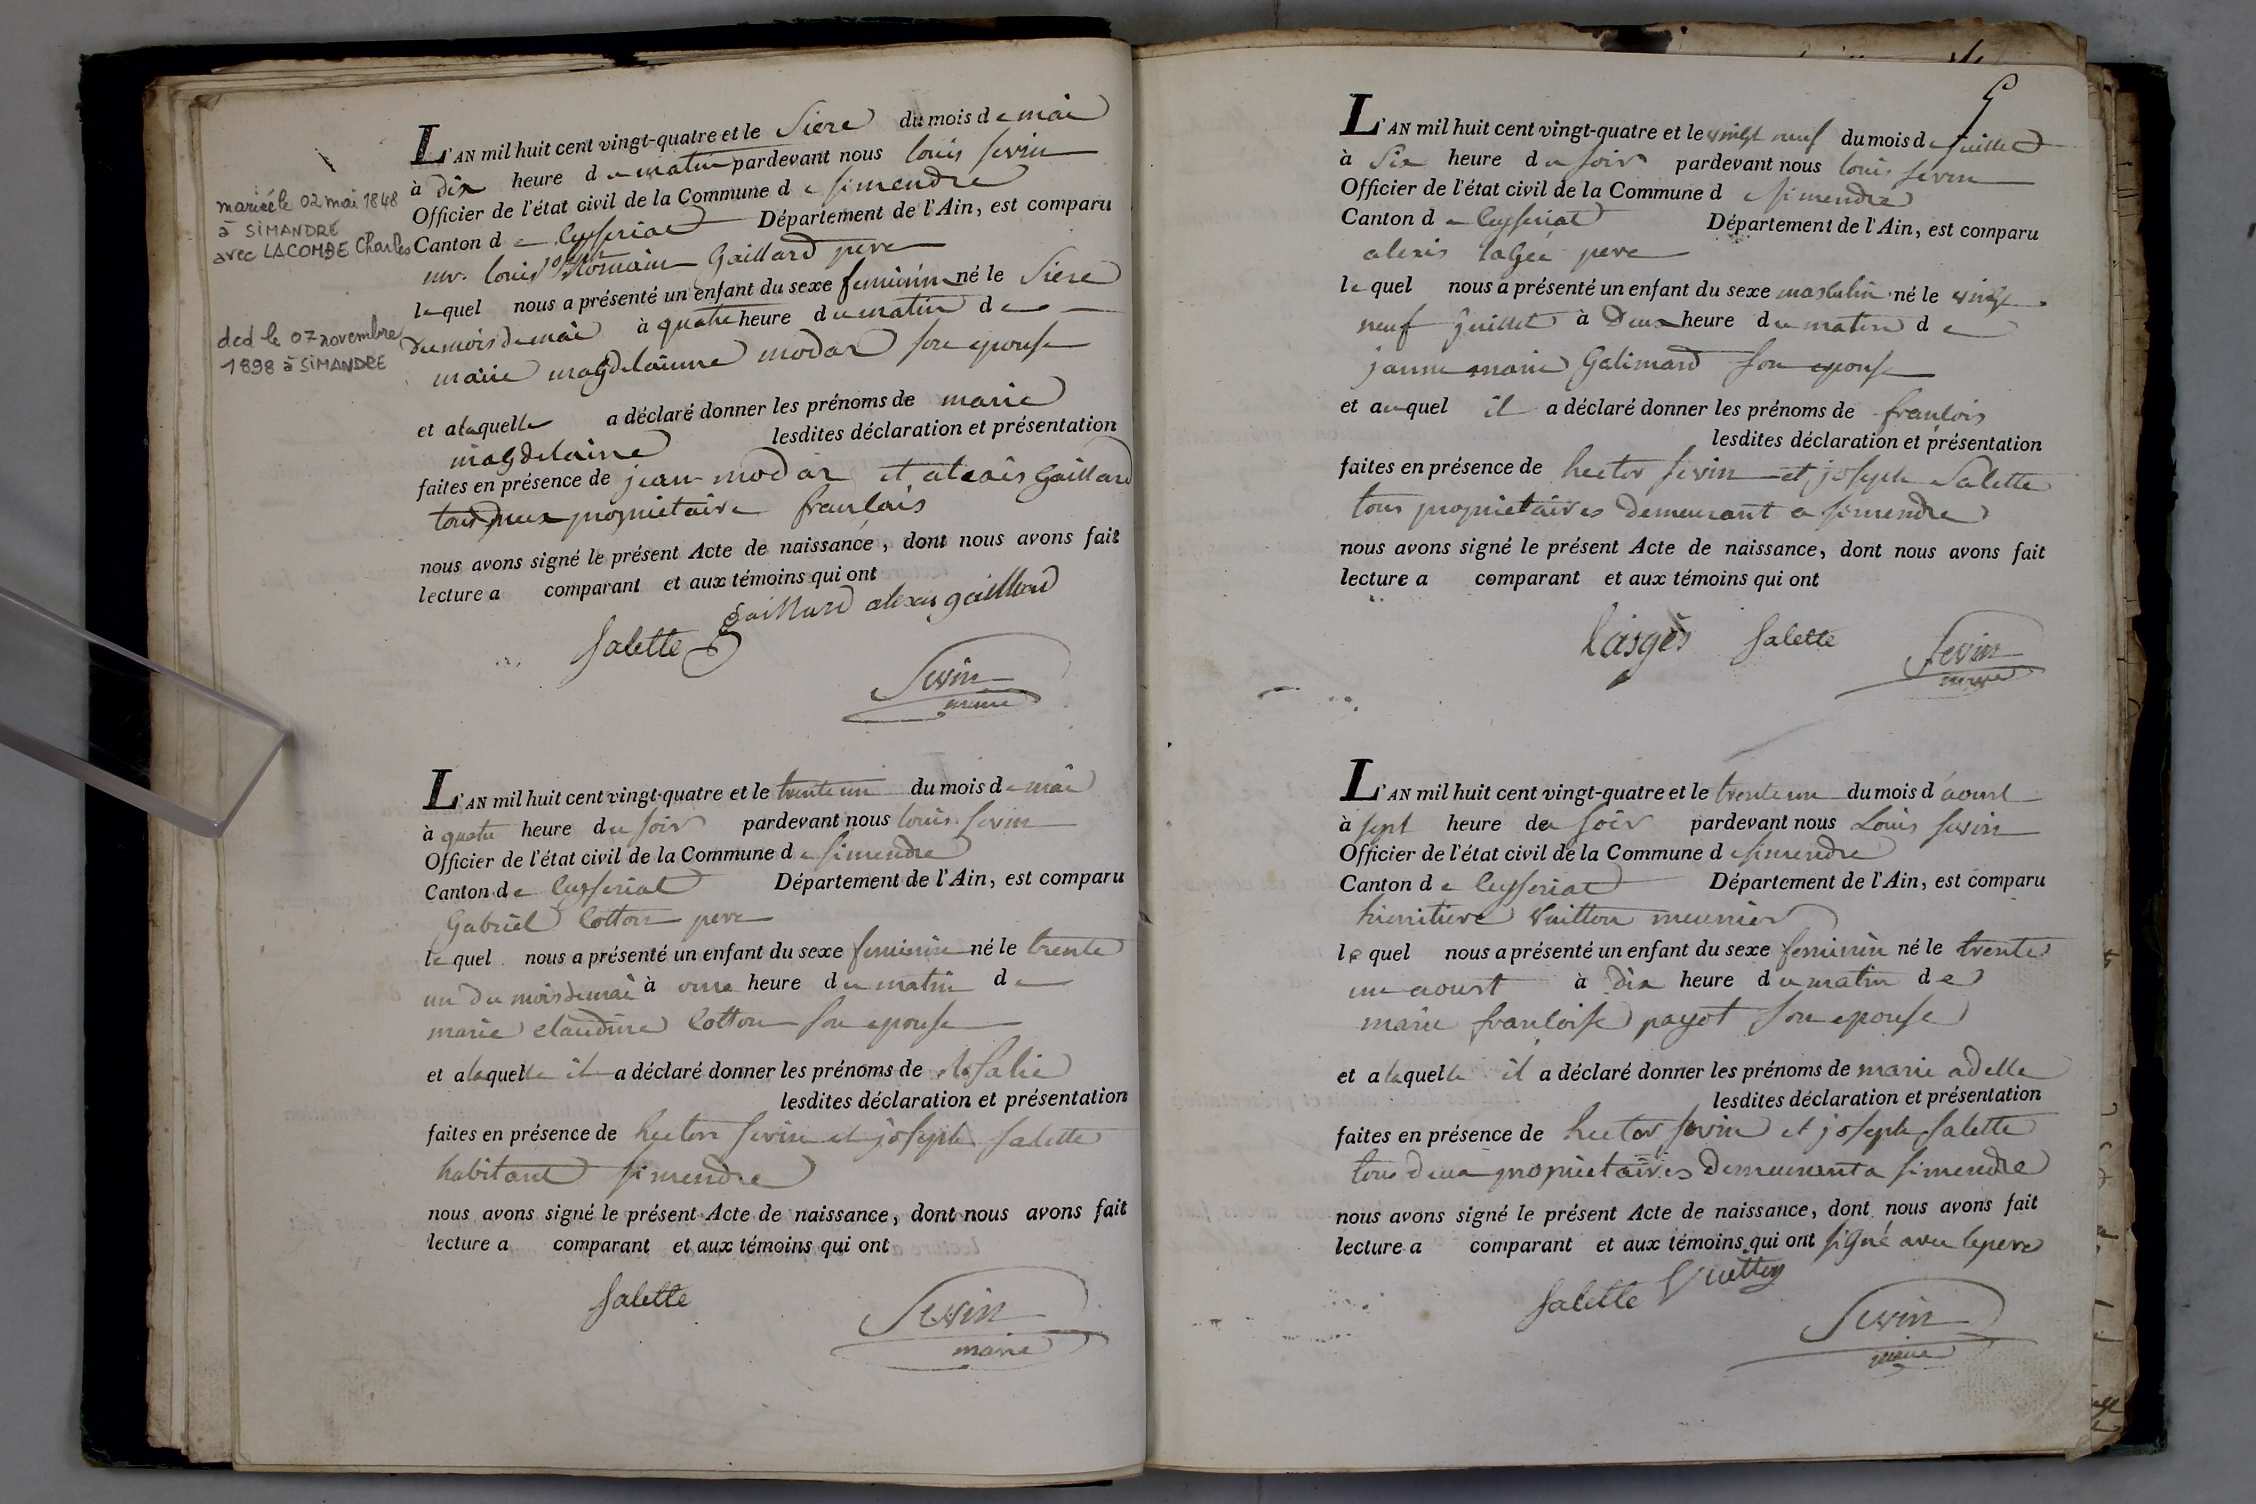 L'AN mil huit cent vingt-quatre et le Siere du mois de mai
à dix heure du matin pardevant nous louis sevin
Officier de l'état civil de la Commune de simendre
Canton de Ceyseriat Département de l'Ain, est comparu
mr. louis joseph Romain Gaillard pere
lequel nous a présenté un enfant du sexe feminin né le Siere
du mois de mai à quatre heure du matin de
marie magdelainne modas son epouse
et a laquelle a déclaré donner les prénoms de marie
magdelaine lesdites déclaration et présentation
faites en présence de jean modas et alexis Gaillard
tous deux propriétaire français
nous avons signé le présent Acte de naissance, dont nous avons fait
lecture a comparant et aux témoins qui ont
gaillard alexis gaillard
salette
Sevin
maire
mariée le 02 mai 1848
à SIMANDRE
avec LACOMBE Charles
dcd le 07 novembre
1898 à SIMANDRE
L'AN mil huit cent vingt-quatre et le trente un du mois de mai
à quatre heure du soir pardevant nous louis sevin
Officier de l'état civil de la Commune de simendre
Canton de Ceyseriat Département de l'Ain, est comparu
Gabriel Cotton pere
lequel nous a présenté un enfant du sexe feminin né le trente
un du mois de mai à onse heure du matin de
marie claudine Cotton son epouse
et a laquelle il a déclaré donner les prénoms de rosalie
lesdites déclaration et présentation
faites en présence de hector sevin et joseph salette
habitant simendre
nous avons signé le présent Acte de naissance, dont nous avons fait
lecture a comparant et aux témoins qui ont
salette
Sevin
maire
5
L'AN mil huit cent vingt-quatre et le vingt neuf du mois de juillet
à Six heure du soir pardevant nous louis sevin
Officier de l'état civil de la Commune de simendre
Canton de Ceyseriat Département de l'Ain, est comparu
alexis lagée pere
lequel nous a présenté un enfant du sexe masculin né le vingt
neuf juillet à Deux heure du matin de
janne marie Galimard son epouse
et auquel il a déclaré donner les prénoms de françois
lesdites déclaration et présentation
faites en présence de hector sevin et joseph Salette
tous propriétaires demeurant a simendre
nous avons signé le présent Acte de naissance, dont nous avons fait
lecture a comparant et aux témoins qui ont
lasgès salette
Sevin
maire
L'AN mil huit cent vingt-quatre et le trente un du mois d'aoust
à sept heure du soir pardevant nous Louis sevin
Officier de l'état civil de la Commune de simendre
Canton de Ceyseriat Département de l'Ain, est comparu
Vuitton meunier
lequel nous a présenté un enfant du sexe feminin né le trente
un aoust à dix heure du matin de
marie françoise payot son epouse
et a laquelle il a déclaré donner les prénoms de marie adelle
lesdites déclaration et présentation
faites en présence de hector sevin et joseph salette
tous deux propriétaires demeurant a simendre
nous avons signé le présent Acte de naissance, dont nous avons fait
lecture a comparant et aux témoins qui ont signé avec le pere
salette Vuitton
Sevin
maire